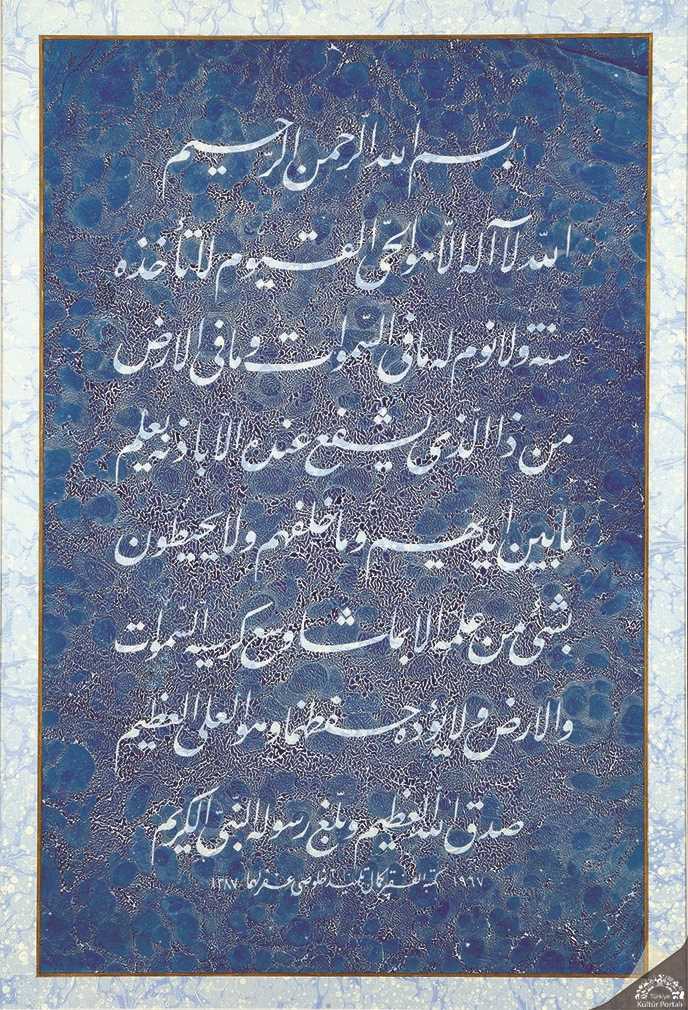 بسم الله الرّحمن الرّحيم
اللّه لا آله الّا هو الحىّ القيّوم لا تأخذه
سنة ولا نوم له ما فى السّموات وما فى الارض
من ذا الّذى يشفع عنده الّا باذنه يعلم
ما بين ايديهم وما خلفهم ولا يحيطون
بشئ من علمه الا بما شا وسع كرسيه السّموات
والارض ولا يؤده حفظهما وهو العلى العظيم
صدق الله العظيم وبلّغ رسوله النّبىّ الكريم
١٩٦٧ كتبه الفقير كمال تلميذ خلوصى غفر لهما ١٣٨٧
Türkiye
Kültür Portalı